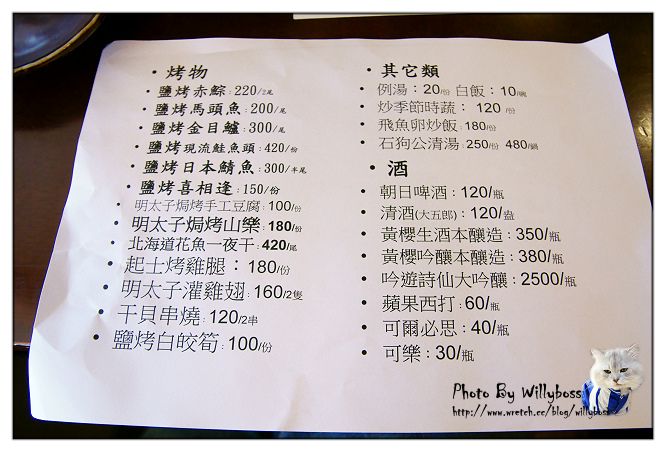 ・烤物
・鹽烤赤鯮：220/2尾
・鹽烤馬頭魚：200/尾
・鹽烤金目鱸：300/尾
・鹽烤現流鮭魚頭：420/份
・鹽烤日本鯖魚：300/半尾
・鹽烤喜相逢：150/份
・明太子焗烤手工豆腐：100/份
・明太子焗烤山樂：180/份
・北海道花魚一夜干：420/尾
・起士烤雞腿：180/份
・明太子灌雞翅：160/2隻
・干貝串燒：120/2串
・鹽烤白皎筍：100/份
・其它類
・例湯：20/份 白飯：10/碗
・炒季節時蔬： 120 /份
・飛魚卵炒飯：180/份
・石狗公清湯：250/份 480/鍋
・酒
・朝日啤酒：120/瓶
・清酒(大五郎)：120/盅
・黃櫻生酒本釀造：350/瓶
・黃櫻吟釀本釀造：380/瓶
・吟遊詩仙大吟釀：2500/瓶
・蘋果西打：60/瓶
・可爾必思：40/瓶
・可樂：30/瓶
Photo By Willyboss
http://www.wretch.cc/blog/willyboss